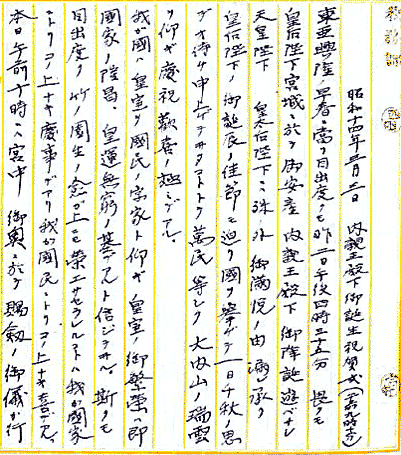 昭和十四年三月三日 内親王殿下御誕生祝賀式(午前九時)
東亜興隆ノ早春ニ當リ目出度クモ昨二日午後四時三十五分 畏クモ
皇后陛下宮城ニ於テ御安産 内親王殿下 御降誕遊バサレ
天皇陛下 皇太后陛下ニハ殊ノ外 御満悦ノ由 漏レ承ル
皇后陛下ノ御誕辰ノ佳節モ迫リ國ヲ挙ゲテ一日千秋ノ思
デオ待チ申上ゲテヰタコトトテ萬民等シク大内山ノ瑞雲
ヲ仰ギ慶祝歓喜ノ趣デアル。
我ガ國ハ皇室ヲ國民ノ宗家ト仰ギ皇室ノ御繁榮ハ即
國家ノ隆昌、皇運無窮ノ基デアルト信ジテヰル。斯クモ
目出度ク竹ノ園生ノ愈ガ上ニモ榮エサセラレルコトハ我ガ國家
ニトリコノ上ナキ慶事デアリ我ガ國民ニトリコノ上ナキ喜デアル。
本日午前十時ニハ宮中 御奥ニ於テ 賜劔ノ御儀ガ行